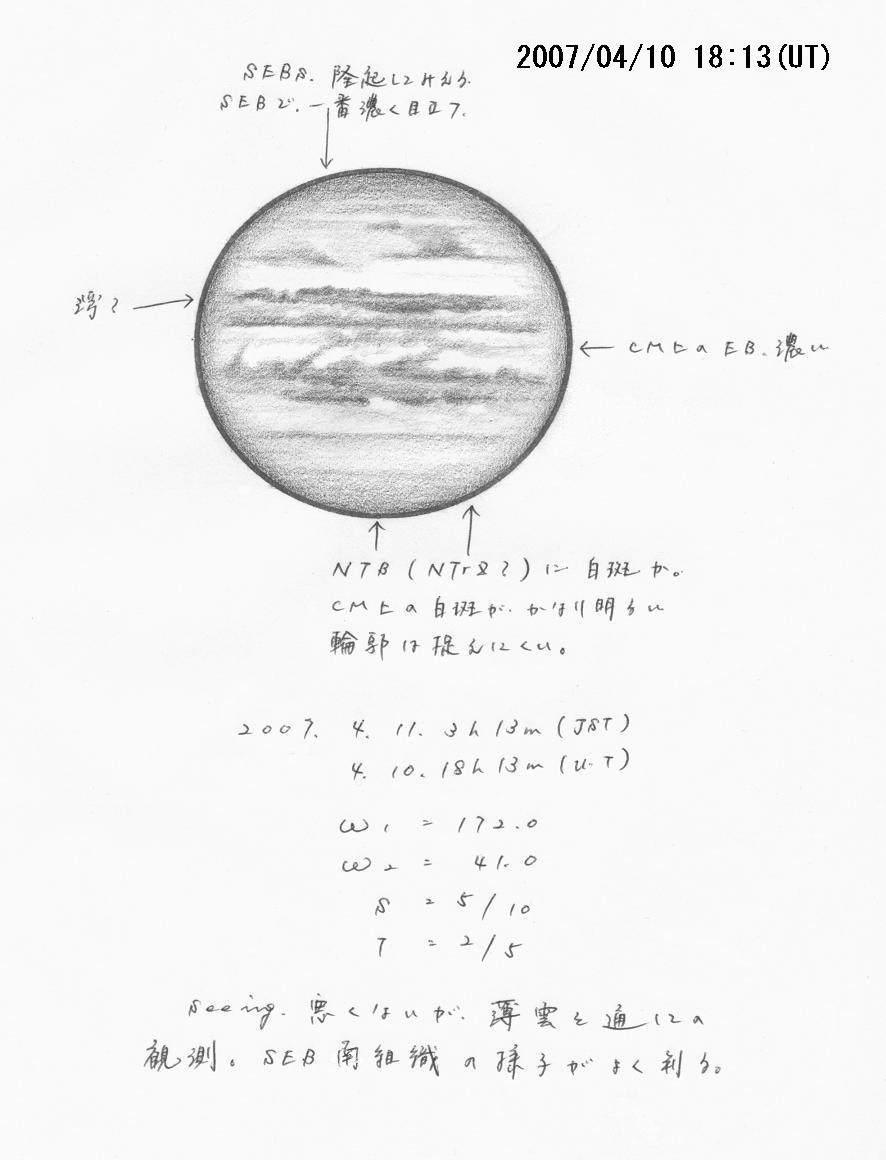 2007/04/10 18:13(UT)
SEBs. 隆起してみえる.
SEBで. 一番濃く目立つ.
CM上のEB. 濃い
NTB (NTrZ?) に 白斑か。
CM上の白斑が、かなり明るい
輪郭は捉えにくい。
2007. 4. 11. 3h 13m (JST)
4. 10. 18h 13m (U.T)
ω1 = 172.0
ω2 = 41.0
S = 5/10
T = 2/5
Seeing. 悪くはないが、薄雲を通しての
観測。SEB南組織の様子がよく判る。